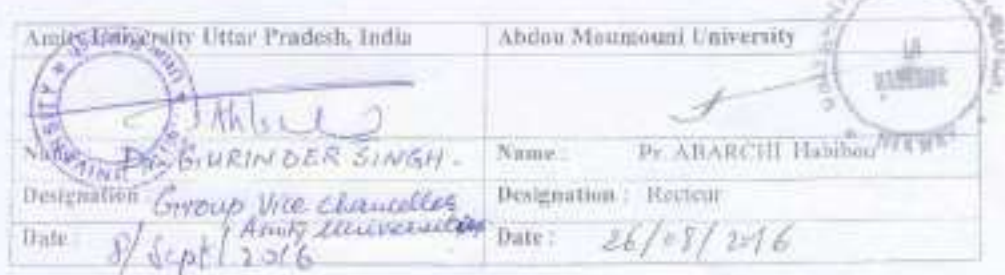 Amity University Uttar Pradesh, India
Abdou Moumouni University
Name Dr. GURINDER SINGH.
Name : Pr. ABARCHI Habibou
Designation Group Vice Chancellor
Amity Universities
Designation : Recteur
Date : 8/Sept/2016
Date : 26/08/2016